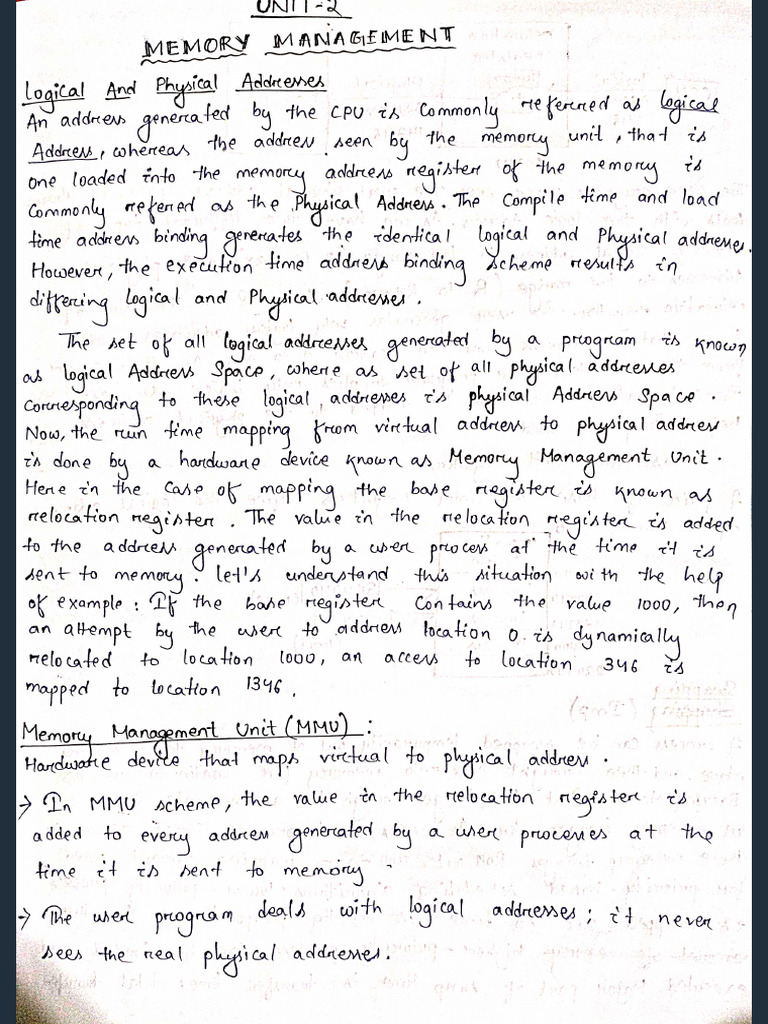 UNIT-2
MEMORY MANAGEMENT
Logical And Physical Addresses
An address generated by the CPU is commonly referred as logical
Address, whereas the address seen by the memory unit, that is
one loaded into the memory address register of the memory is
commonly referred as the Physical Address. The compile time and load
time address binding generates the identical logical and Physical addresses.
However, the execution time address binding scheme results in
differing logical and Physical addresses.
The set of all logical addresses generated by a program is known
as logical Address Space, where as set of all physical addresses
corresponding to these logical addresses is physical Address Space.
Now, the run time mapping from virtual address to physical address
is done by a hardware device known as Memory Management Unit.
Here in the case of mapping the base register is known as
relocation register. The value in the relocation register is added
to the address generated by a user process at the time it is
sent to memory. Let's understand this situation with the help
of example: If the base register contains the value 1000, then
an attempt by the user to address location 0 is dynamically
relocated to location 1000, an access to location 346 is
mapped to location 1346.
Memory Management Unit (MMU) :
Hardware device that maps virtual to physical address.
→ In MMU scheme, the value in the relocation register is
added to every address generated by a user processes at the
time it is sent to memory
→ The user program deals with logical addresses; it never
sees the real physical addresses.